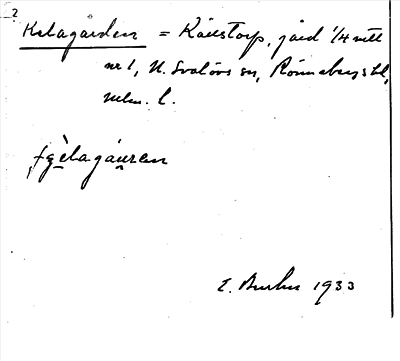 2
Kelagården = Källstorp, gård 1/4 mtl
nr 1, N. Svalövs sn, Rönnebergs hd,
Malm. l.
gèlagáuren
E. 1933